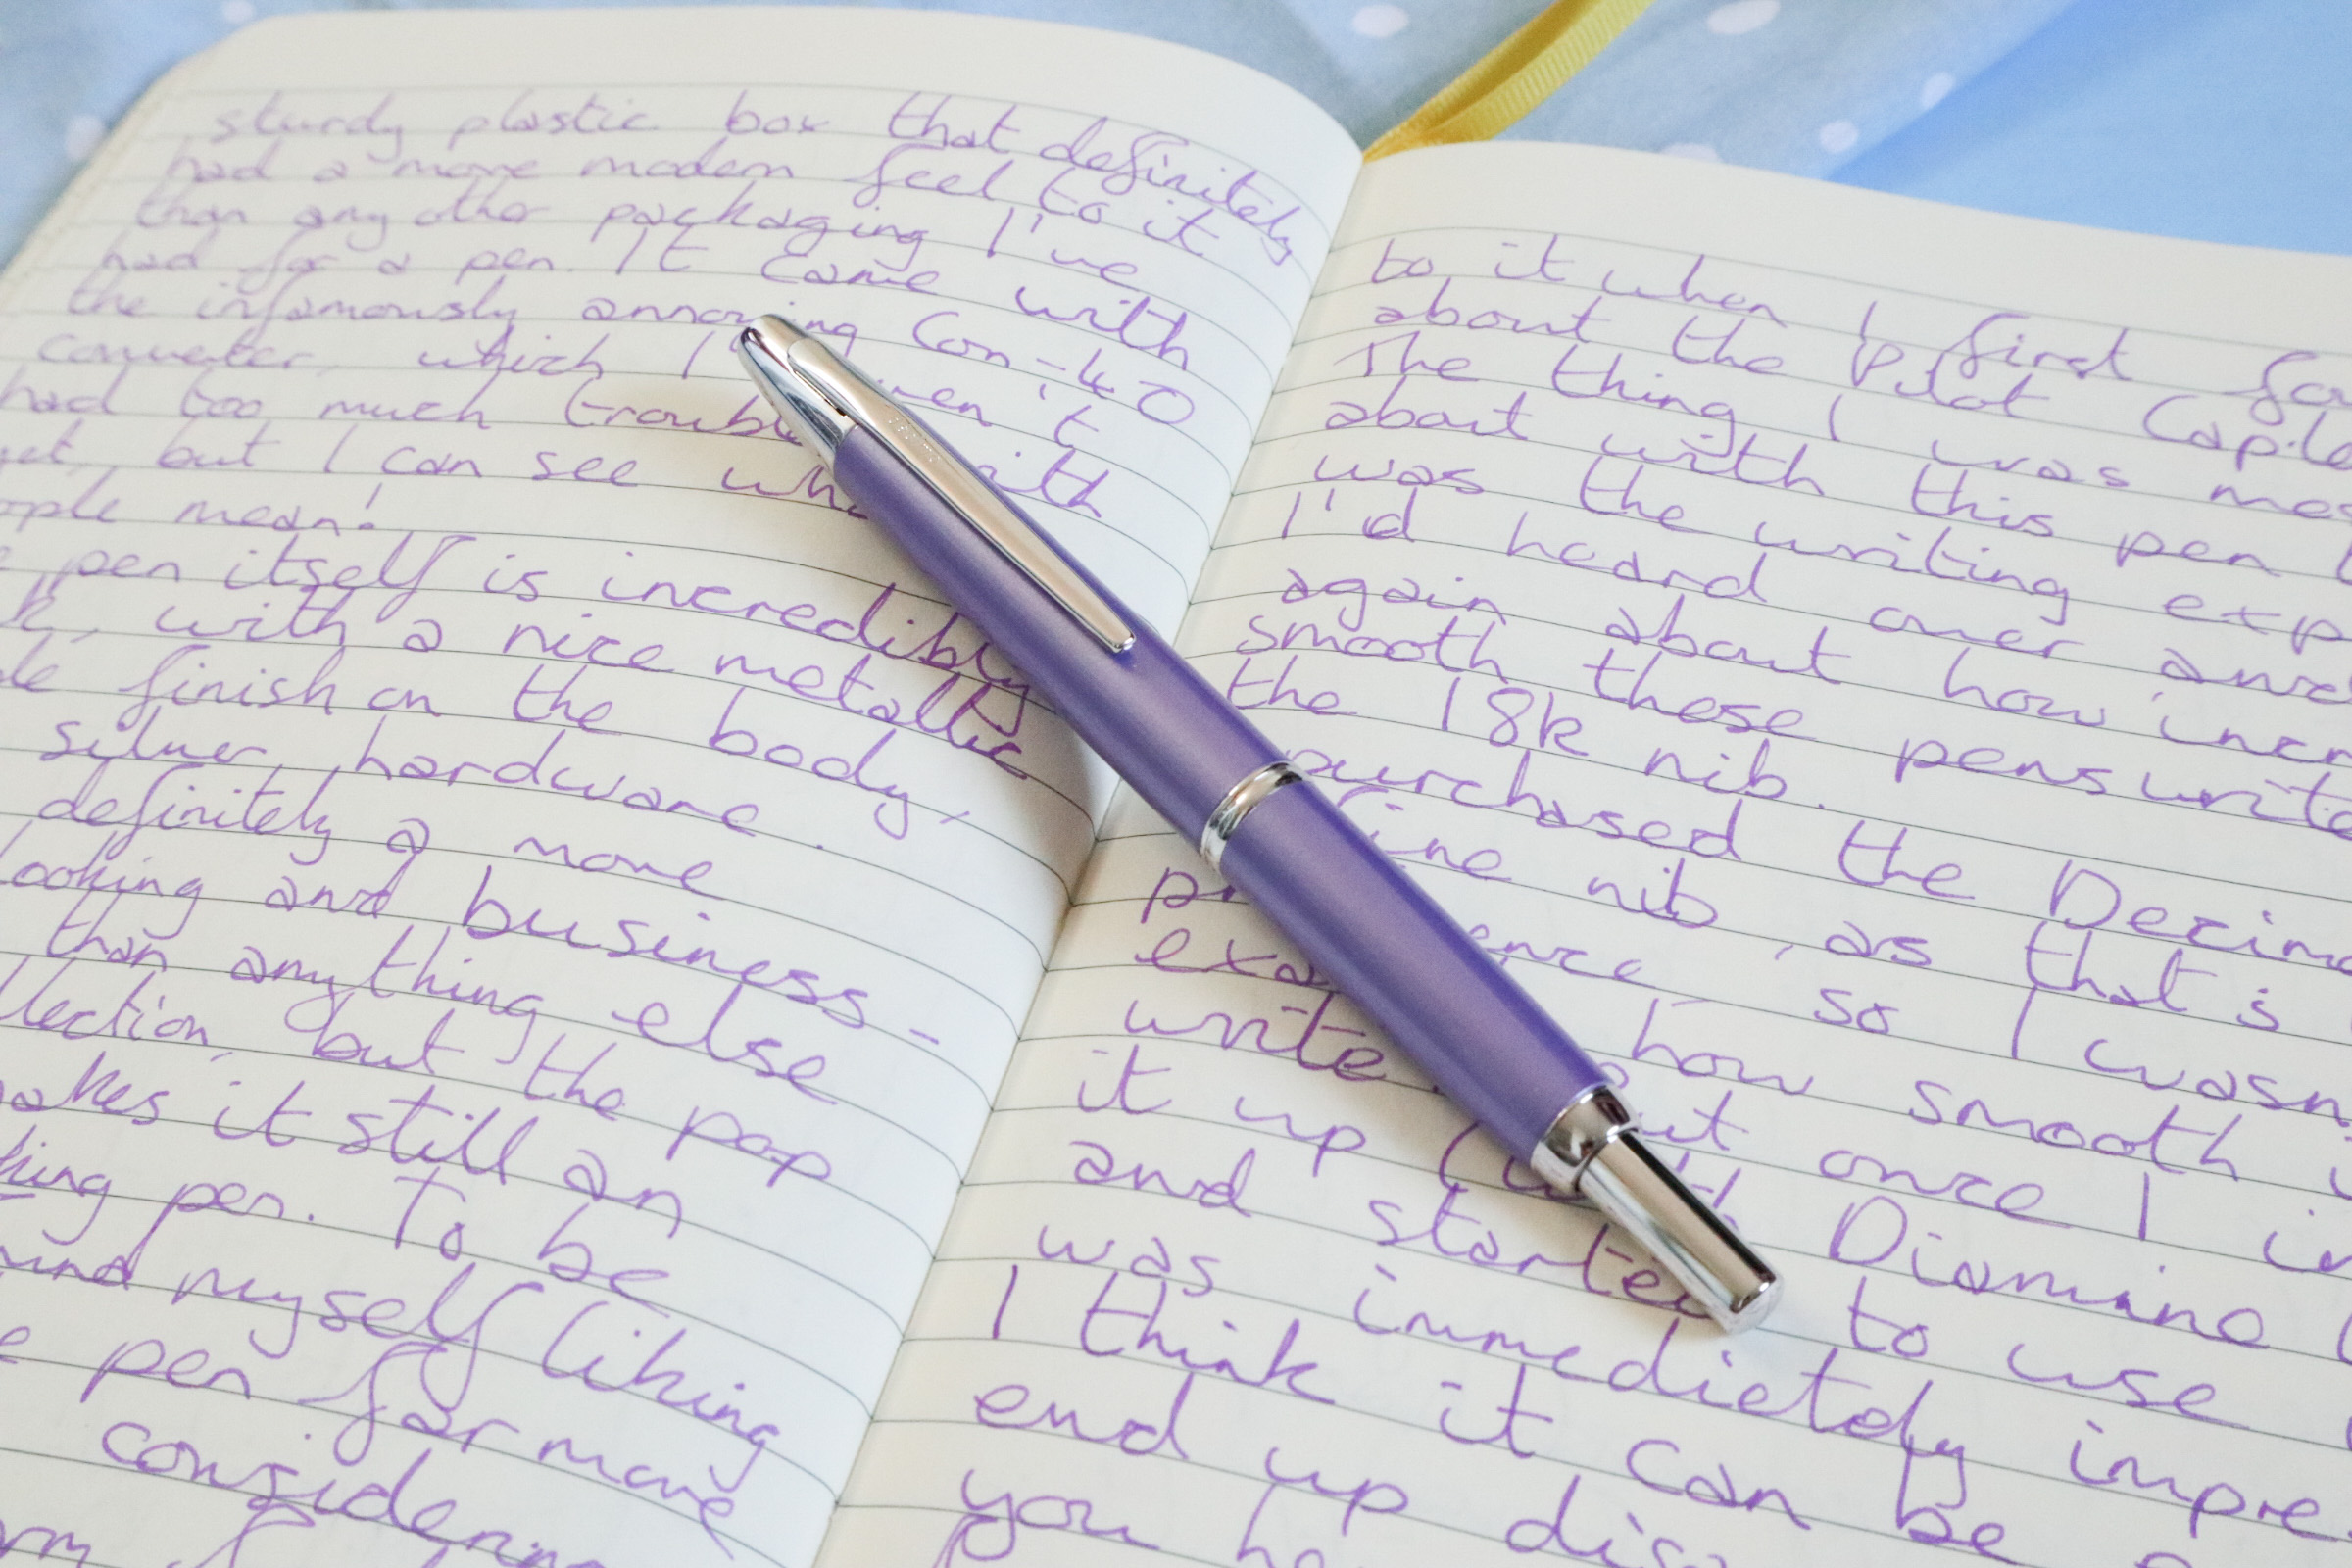 sturdy plastic box that definitely
had a more modern feel to it
than any other packaging I've
had for a pen. It came with
the infamously annoying Con-40
converter, which I
had too much with
yet, but I can see
mean!
pen itself is incredibly
with a nice metallic
finish on the body,
silver hardware.
definitely a more
looking and business-
than anything else
but the pop
makes it still an
pen. To be
myself liking
pen far more
considering
to it when I first
about the Pilot Caple
The thing I was
about with this pen
was the writing exp
I'd heard over and
again about how incr
smooth these pens write
the 18k nib.
purchased the Decimo
fine nib, as that's
so I wasn
how smooth
write. but once I
it up (with Diamine
and started to use
was immedietely impre
I think it can be
end up
you